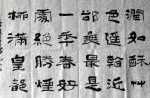 潤如酥艸
色遥看近
卻無最是
一年春好
處絕勝煙
柳滿皇都